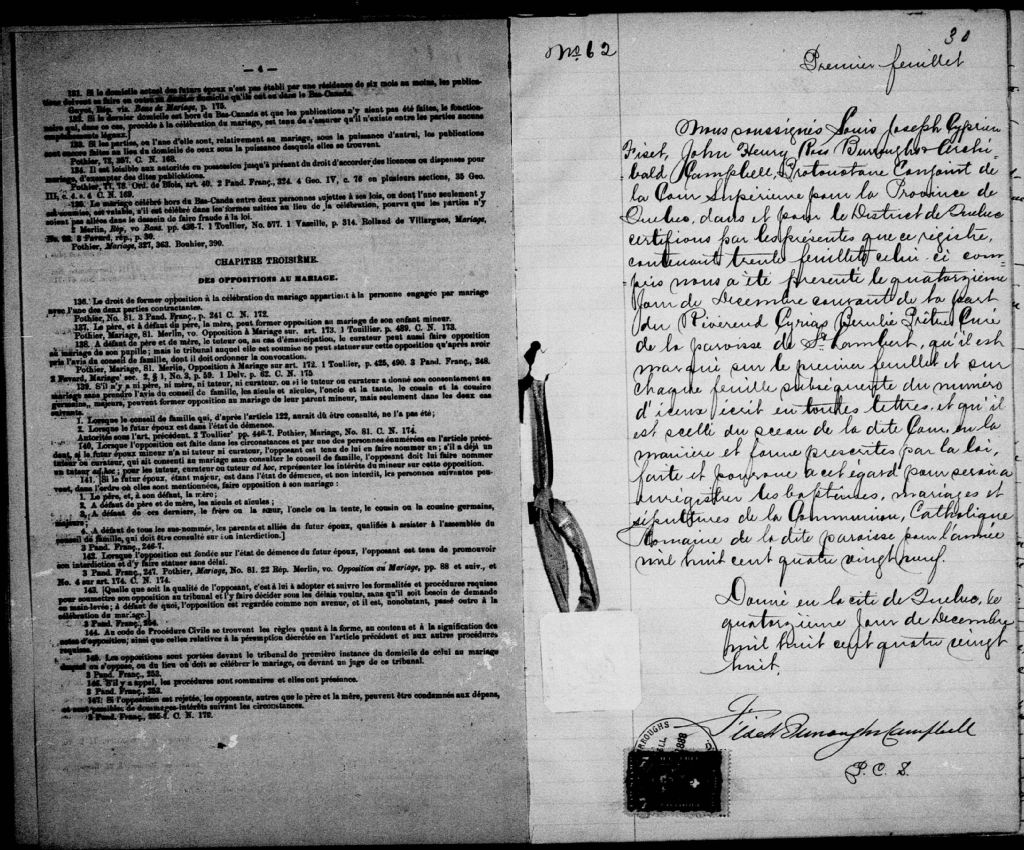 — 4 —
131. Si le domicile actuel des futurs époux n'est pas établi par une résidence de six mois au moins, les publica-
tions doivent se faire en outre au dernier domicile qu'ils ont eu dans le Bas-Canada.
Guyot, Rép. vis. Bans de Mariage, p. 175.
132. Si le dernier domicile est hors du Bas-Canada et que les publications n'y aient pas été faites, le fonction-
naire qui, dans ce cas, procède à la célébration du mariage, est tenu de s'assurer qu'il n'existe entre les parties aucuns
empêchements légaux.]
133. Si les parties, ou l'une d'elles sont, relativement au mariage, sous la puissance d'autrui, les publications
sont encore faites au lieu du domicile de ceux sous la puissance desquels elles se trouvent.
Pothier, 72, 257. C. N. 168.
134. Il est loisible aux autorités en possession jusqu'à présent du droit d'accorder des licences ou dispenses pour
mariage, d'exempter des dites publications.
Pothier, 77, 78. Ord. de Blois, art. 40. 2 Pand. Franç., 324. 4 Geo. IV, c. 76 en plusieurs sections, 35 Geo.
III, c. 4. s. 4 C. N. 169.
135. Le mariage célébré hors du Bas-Canada entre deux personnes sujettes à ses lois, ou dont l'une seulement y
est soumise, est valable, s'il est célébré dans les formes usitées au lieu de la célébration, pourvu que les parties n'y
soient pas allées dans le dessein de faire fraude à la loi.
2 Merlin, Rép, vo Bans. pp. 436-7. 1 Toullier, No. 577. 1 Vazeille, p. 314. Rolland de Villargues, Mariage,
No. 22. 3 Favard, rép., p. 36.
Pothier, Mariage, 327, 363. Bouhier, 390.
CHAPITRE TROISIÈME.
DES OPPOSITIONS AU MARIAGE.
136. Le droit de former opposition à la célébration du mariage appartient à la personne engagée par mariage
avec l'une des deux parties contractantes.
Pothier, No. 81. 3 Pand. Franç., p. 241 C. N. 172.
137. Le père, et à défaut du père, la mère, peut former opposition au mariage de son enfant mineur.
Pothier, Mariage, 81. Merlin, vo. Opposition à Mariage sur. art. 173. 1 Toullier. p. 489. C. N. 173.
138. A défaut de père et de mère, le tuteur ou, au cas d'émancipation, le curateur peut aussi faire opposition
au mariage de son pupille; mais le tribunal auquel elle est soumise ne peut statuer sur cette opposition qu'après avoir
pris l'avis du conseil de famille, dont il doit ordonner la convocation.
Pothier, Mariage, 81. Merlin, Opposition à Mariage sur art. 172. 1 Toullier, p. 425, 490. 3 Pand. Franç., 248.
2 Favard, Mariage' sec. 2, § 1, No. 3, p. 59. 1 Delv. p. 62. C. N. 175
139. S'il n'y a ni père, ni mère, ni tuteur, ni curateur, ou si le tuteur ou curateur a donné son consentement au
mariage sans prendre l'avis du conseil de famille, les aïeuls et aïeules, l'oncle et la tante, le cousin et la cousine
germains, majeurs, peuvent former opposition au mariage de leur parent mineur, mais seulement dans les deux cas
suivants.
1. Lorsque le conseil de famille qui, d'après l'article 122, aurait dû être consulté, ne l'a pas été;
2. Lorsque le futur époux est dans l'état de démence.
Autorités sous l'art. précédent. 2 Toullier' pp. 446-7. Pothier, Mariage, No. 81. C. N. 174.
140. Lorsque l'opposition est faite dans les circonstances et par une des personnes énumérées en l'article précé-
dent, si le futur époux mineur n'a ni tuteur ni curateur, l'opposant est tenu de lui en faire nommer un; s'il a déjà un
tuteur ou curateur, qui ait consenti au mariage sans consulter le conseil de famille, l'opposant doit lui faire nommer
un tuteur ad hoc; pour les tuteur, curateur ou tuteur ad hoc, représenter les intérêts du mineur sur cette opposition.
141. Si le futur époux, étant majeur, est dans l'état de démence, et non interdit, les personnes suivantes peu-
vent, dans l'ordre où elles sont mentionnées, faire opposition à son mariage:
1. Le père, et, à son défaut, la mère;
2. A défaut de père et de mère, les aïeuls et aïeules;
3. A défaut de ces derniers, le frère ou la sœur, l'oncle ou la tente, le cousin ou la cousine germains,
majeurs;
4. A défaut de tous les sus-nommé, les parents et alliés du futur époux, qualifiés à assister à l'assemblée du
conseil de famille, qui doit être consulté sur son interdiction.]
3 Pand. Franç., 246-7.
142. Lorsque l'opposition est fondée sur l'état de démence du futur époux, l'opposant est tenu de promouvoir
son interdiction et d'y faire statuer sans délai.
3 Pand. Franç., 247. Pothier, Mariage, No. 81. 22 Rép. Merlin, vo. Opposition au Mariage, pp. 88 et suiv., et
No. 4 sur art. 174. C. N. 174.
143. [Quelle que soit la qualité de l'opposant, c'est à lui à adopter et suivre les formalités et procédures requises
pour soumettre son opposition au tribunal et l'y faire décider sous les délais voulus, sans qu'il soit besoin de demande
en main-levée; à défaut de quoi, l'opposition est regardée comme non avenue, et il est, nonobstant, passé outre à la
célébration du mariage.]
3 Pand. Franç., 254.
144. Au code de Procédure Civile se trouvent les règles quant à la forme, au contenu et à la signification des
actes d'opposition; ainsi que celles relatives à la péremption décrétée en l'article précédent et aux autres procédures
requises.
145. Les oppositions sont portées devant le tribunal de première instance du domicile de celui au mariage
duquel on s'oppose, ou du lieu où doit se célébrer le mariage, ou devant un juge de ce tribunal.
3 Pand. Franç., 253.
146. S'il y a appel, les procédures sont sommaires et elles ont préséance.
3 Pand. Franç., 253.
147. Si l'opposition est rejetée, les opposants, autres que le père et la mère, peuvent être condamnés aux dépens,
et sont passibles de dommages-intérêts suivant les circonstances.
3 Pand. Franç., C. N. 179.
No 62
30
Premier feuillet
Nous soussignés Louis Joseph Cyprien
Fiset, John Henry Ross Burroughs Archi-
bald Campbell, Protonotaire Conjoint de
la Cour Supérieure pour la Province de
Québec, dans et pour le District de Québec
certifions par les présentes que ce régistre,
contenant trente feuillets celui-ci com-
pris nous a été présenté le quatorzième
jour de Décembre courant de la part
du Révérend Cyrias Bérubé Prêtre Curé
de la paroisse de St Lambert, qu'il est
marqué sur le premier feuillet et sur
chaque feuille subséquente du numéro
d'icense écrit en toutes lettres, et qu'il
est scellé du sceau de la dite Cour, en la
manière et forme prescrites par la loi,
faite et pourvue à cet égard pour servir à
enrégistrer les baptêmes, mariages et
sépultures de la Communion, Catholique
Romaine de la dite paroisse pour l'année
mil huit cent quatre vingt neuf.
Donné en la cité de Québec, le
quatorzième jour de Décembre
mil huit cent quatre vingt
huit.
Fiset Burroughs Campbell
P. C. S.
BURROUGHS
1888